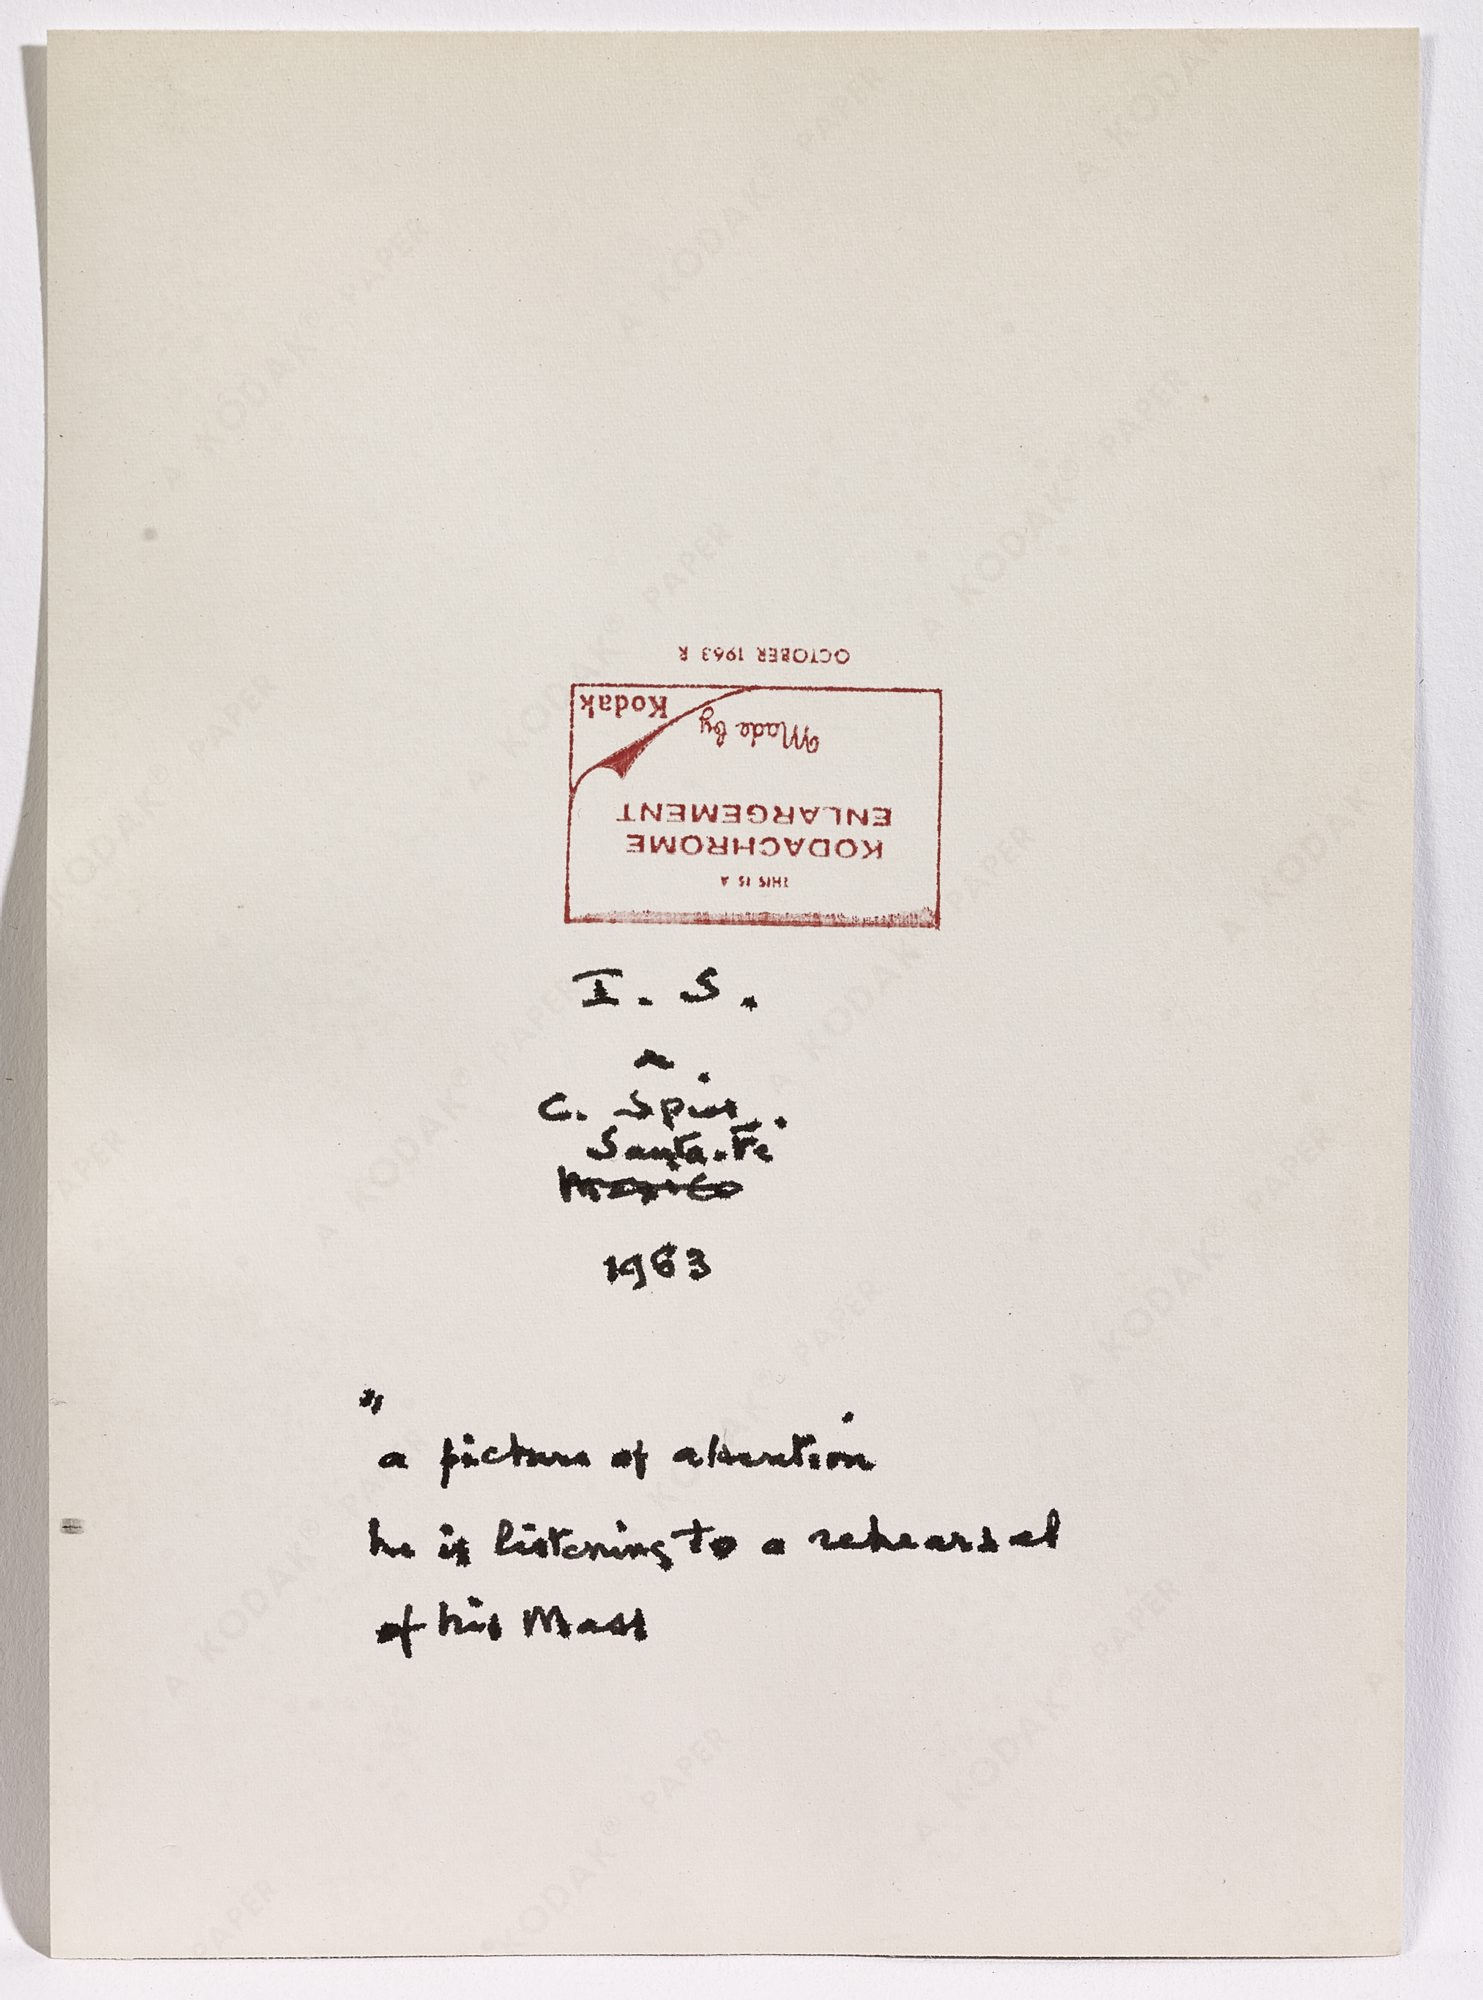 OCTOBER 1963 R
Kodak
Made by
KODACHROME
ENLARGEMENT
THIS IS A
I. S.
C. Spies
Santa-Fe
Mexico
1963
"
a picture of attention
he is listening to a rehearsal
of his Mass
A KODAK® PAPER